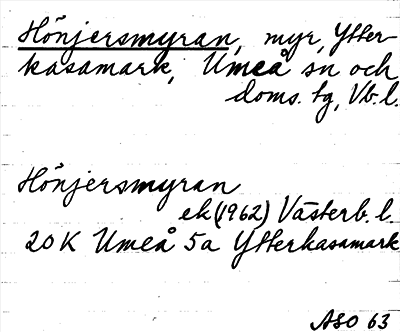 Hönjersmyran, myr, Ytter-
kasamark, Umeå sn och
doms. tg, Vb. l.
Hönjersmyran
ek (1962) Västerb. l.
20K Umeå 5a Ytterkasamark
ASO 63